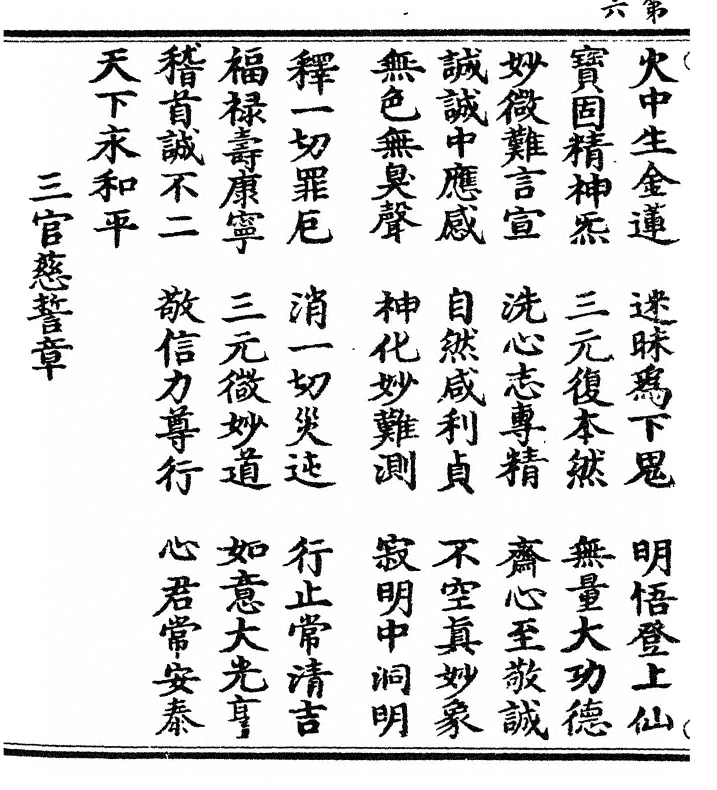 第六
火中生金蓮　迷昧為下鬼　明悟登上仙
寶固精神炁　三元復本然　無量大功德
妙微難言宣　洗心志專精　齋心至敬誠
誠誠中應感　自然咸利貞　不空眞妙象
無色無臭聲　神化妙難測　寂明中洞明
釋一切罪厄　消一切災迍　行止常清吉
福祿壽康寧　三元微妙道　如意大光亨
稽首誠不二　敬信力尊行　心君常安泰
天下永和平
三官慈誓章